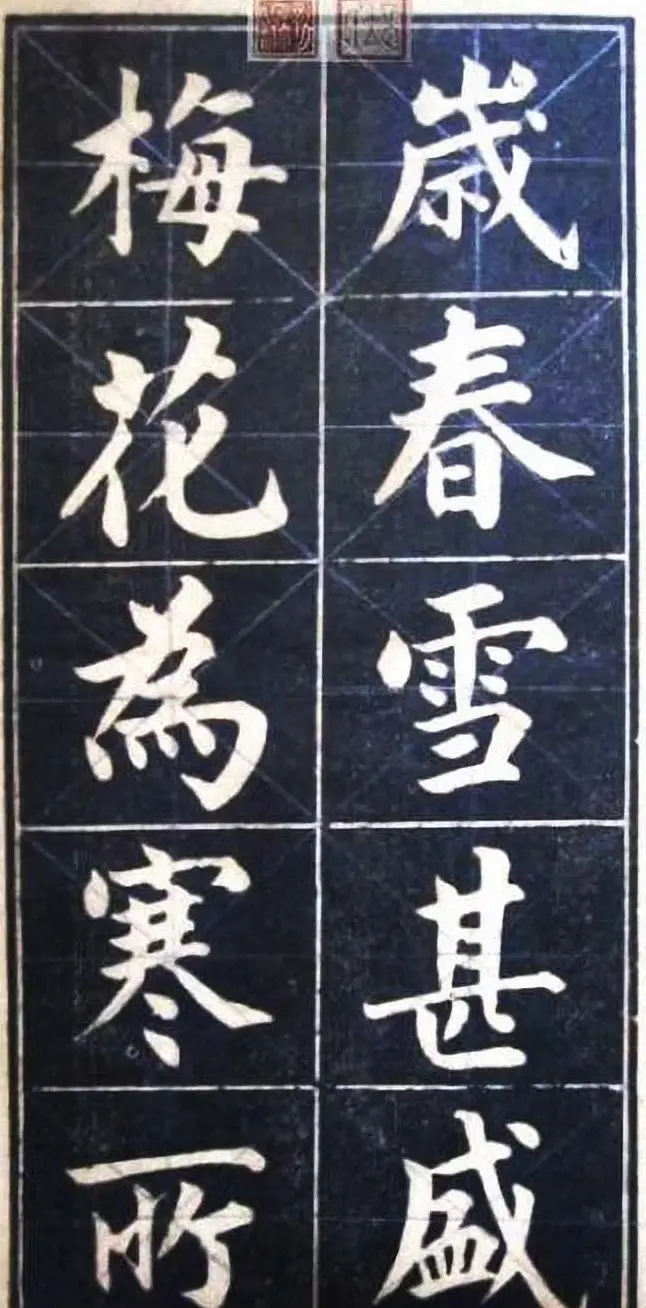 歲春雪甚盛
梅花為寒所